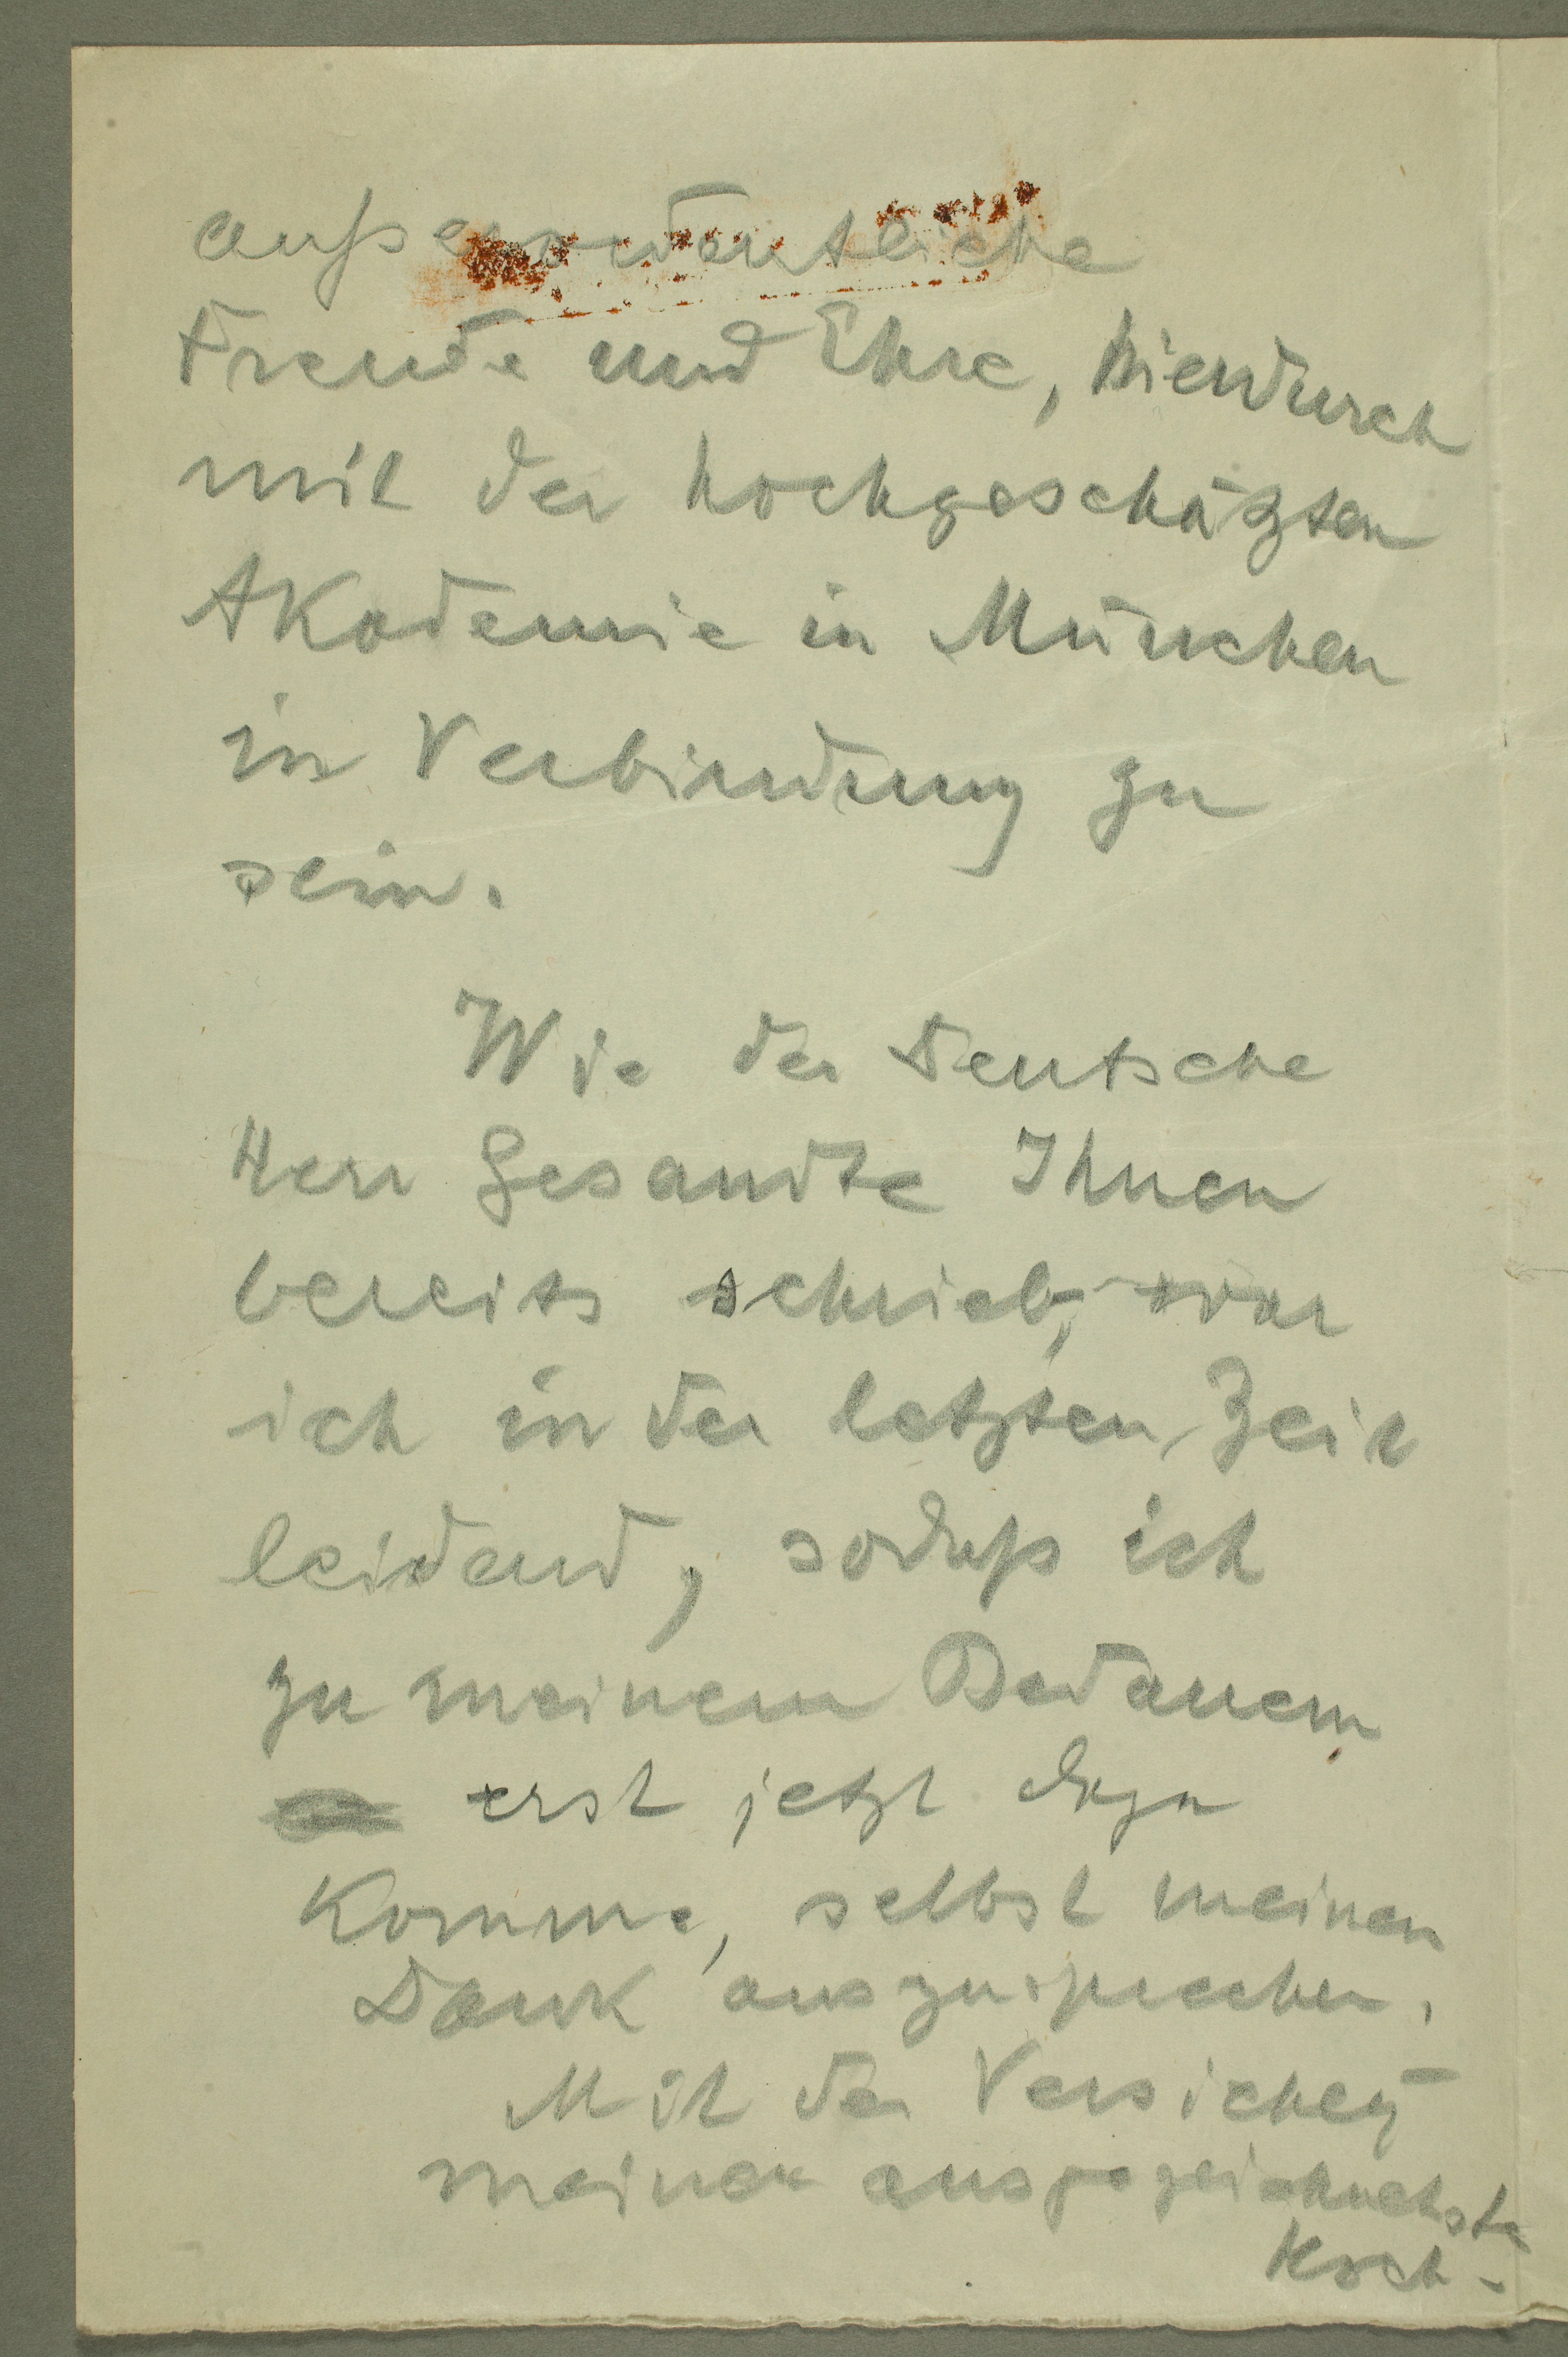 außerordentliche
Freude und Ehre, hierdurch
mit der hochgeschätzten
Akademie in München
in Verbindung zu
sein.
Wie der Deutsche
Herr Gesandte Ihnen
bereits schrieb, war
ich in der letzten Zeit
leidend, sodaß ich
zu meinem Bedauern
erst jetzt dazu
komme, selbst meinen
Dank auszusprechen.
Mit der Versicherg
meiner ausgezeichnetste
Hoch-